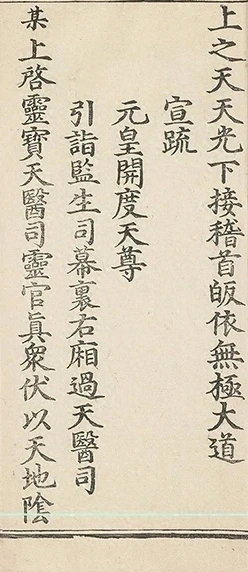 上之天天光下接稽首皈依無極大道
宣疏
元皇開度天尊
引詣監生司幕裏右廂過天醫司
某上啓靈寶天醫司靈官眞衆伏以天地陰